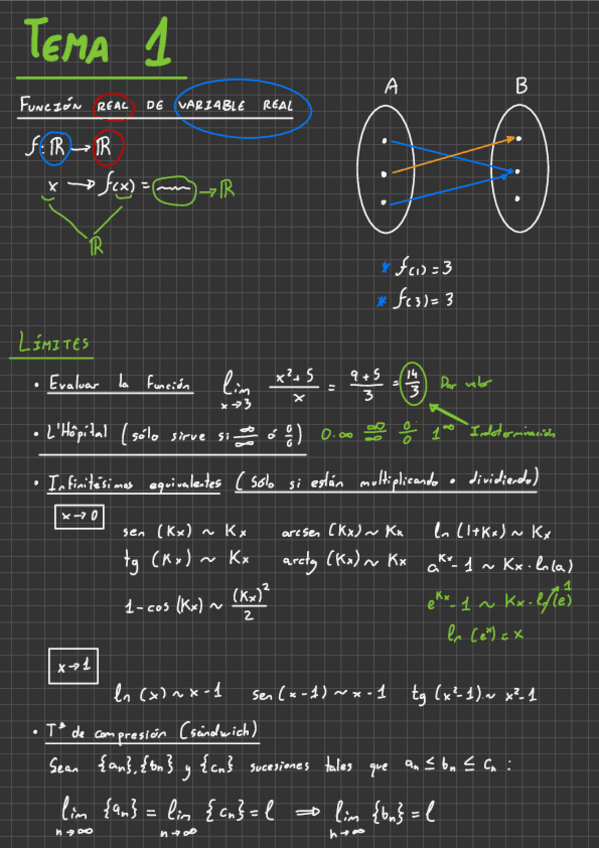 TEMA 1
FUNCIÓN REAL DE VARIABLE REAL
f: ℝ → ℝ
x → f(x) = ⁓ → ℝ
ℝ
A B
* f(1) = 3
* f(3) = 3
LÍMITES
• Evaluar la función lim x→3 (x²+5)/x = (9+5)/3 = 14/3 Dar valor
• L'Hôpital (sólo sirve si ∞/∞ ó 0/0) 0·∞ ∞/∞ 0/0 1^∞ Indeterminación
• Infinitésimos equivalentes (Sólo si están multiplicando o dividiendo)
x→0
sen (Kx) ~ Kx arcsen (Kx) ~ Kx ln (1+Kx) ~ Kx
tg (Kx) ~ Kx arctg (Kx) ~ Kx a^Kx - 1 ~ Kx · ln(a)
1 - cos (Kx) ~ (Kx)²/2 e^Kx - 1 ~ Kx · ln(e) 1
ln (e^x) = x
x→1
ln (x) ~ x-1 sen (x-1) ~ x-1 tg (x²-1) ~ x²-1
• Tª de compresión (sandwich)
Sean {an}, {bn} y {cn} sucesiones tales que an ≤ bn ≤ cn :
lim n→∞ {an} = lim n→∞ {cn} = l ⟹ lim n→∞ {bn} = l